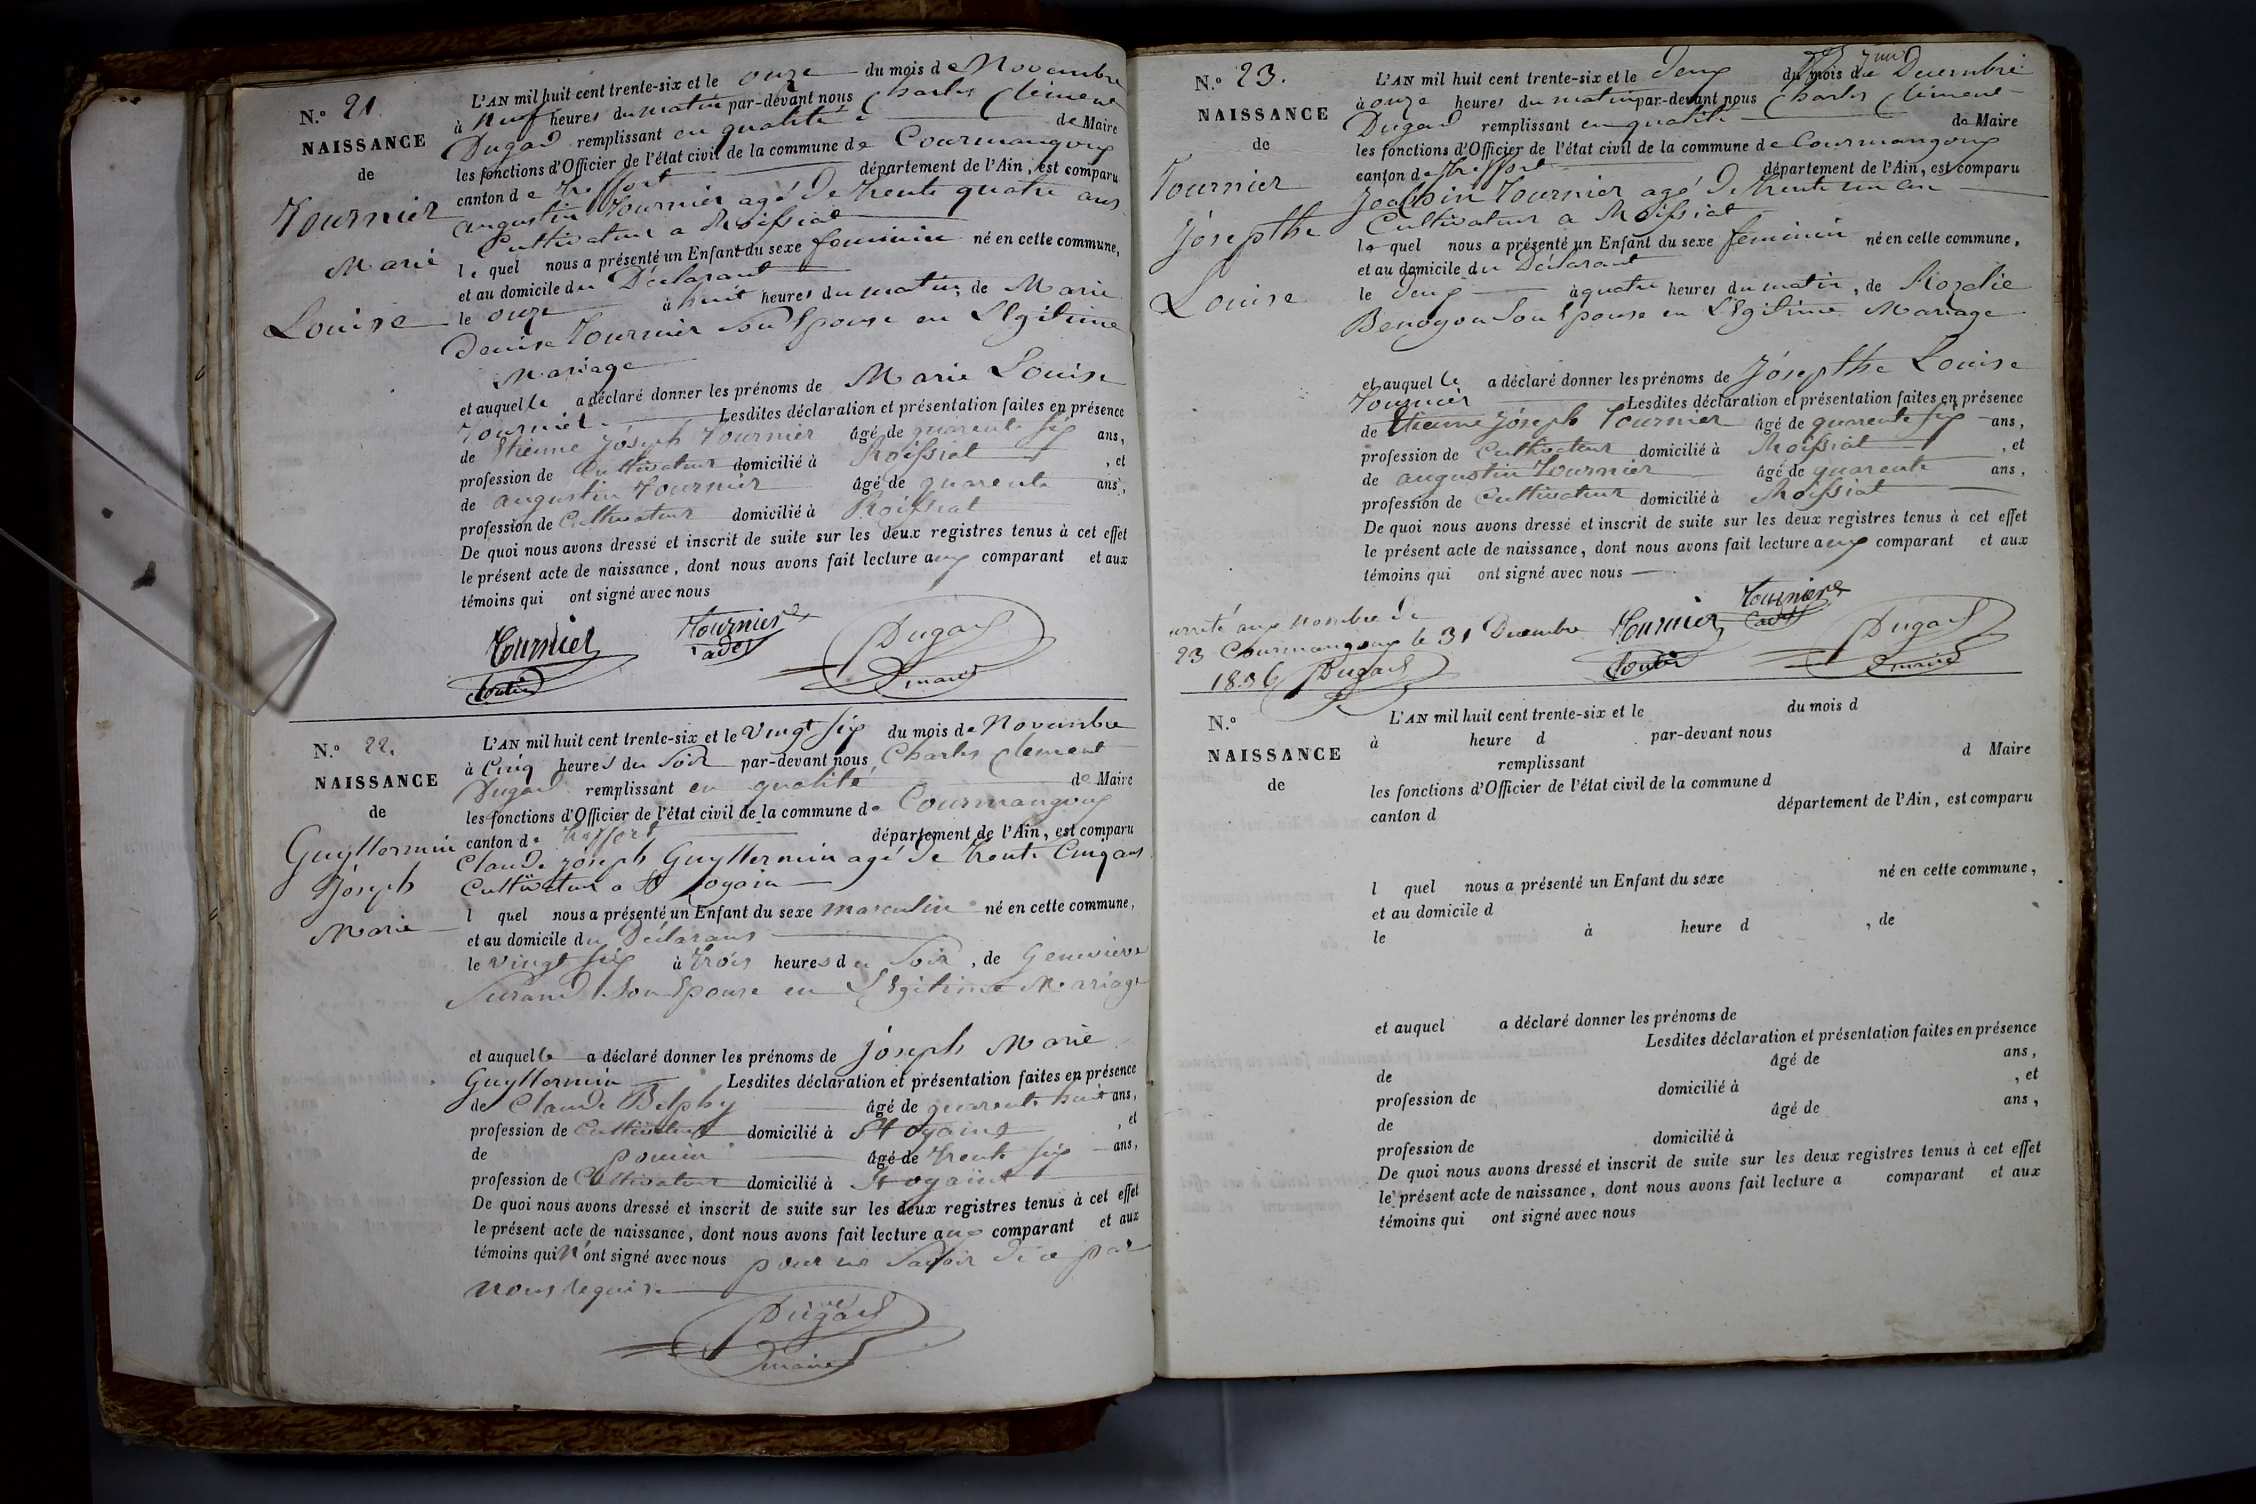 N.º 21.
NAISSANCE
de
Tournier
Marie
Louise
L'AN mil huit cent trente-six et le onze du mois de Novembre
à neuf heures du matin par-devant nous Charles Clément
Dugad remplissant en qualité de Maire
les fonctions d'Officier de l'état civil de la commune de Courmangoux
canton de Treffort département de l'Ain, est comparu
augustin Tournier agé de trente quatre ans
Cultivateur a Roissiat
le quel nous a présenté un Enfant du sexe feminin né en cette commune,
et au domicile du Déclarant
le onze à huit heures du matin, de Marie
Denise Tournier son Epouse en Légitime
Mariage
et auquel le a déclaré donner les prénoms de Marie Louise
Tournier. Lesdites déclaration et présentation faites en présence
de Etienne Jóseph Tournier âgé de quarente six ans,
profession de Cultivateur domicilié à Roissiat , et
de augustin Tournier âgé de quarente ans,
profession de Cultivateur domicilié à Roissiat
De quoi nous avons dressé et inscrit de suite sur les deux registres tenus à cet effet
le présent acte de naissance, dont nous avons fait lecture aux comparant et aux
témoins qui ont signé avec nous
Tournier Tournier Dugad
adj maire
N.º 22.
NAISSANCE
de
Guyllermin
Jóseph
Marie
L'AN mil huit cent trente-six et le vingt six du mois de Novembre
à Cinq heures du Soir par-devant nous Charles Clement
Dugad remplissant en qualité de Maire
les fonctions d'Officier de l'état civil de la commune de Courmangoux
canton de Treffort département de l'Ain, est comparu
Claude Jóseph Guyllermin agé de trente Cinq ans
Cultivateur a St oyain
l quel nous a présenté un Enfant du sexe masculin né en cette commune,
et au domicile du Déclarans
le vingt six à trois heures du Soir, de Genevieve
Surand Son Epouse en Légitime Mariage
et auquel le a déclaré donner les prénoms de Jóseph Marie
Guyllermin Lesdites déclaration et présentation faites en présence
de Claude Belphy âgé de quarente huit ans,
profession de Cultivateur domicilié à St oyains , et
de âgé de trente six ans,
profession de Cultivateur domicilié à St oyains
De quoi nous avons dressé et inscrit de suite sur les deux registres tenus à cet effet
le présent acte de naissance, dont nous avons fait lecture aux comparant et aux
témoins qui n'ont signé avec nous pour ne Savoir de ce par
nous requis
Dugad
maire
N.º 23.
NAISSANCE
de
Tournier
Jósepthe
Louise
L'AN mil huit cent trente-six et le deux du mois de Decembre
à onze heures du matin par-devant nous Charles Clément
Dugad remplissant en qualité de Maire
les fonctions d'Officier de l'état civil de la commune de Courmangoux
canton de Treffort département de l'Ain, est comparu
Joachin Tournier agé de trente un an
Cultivateur a Roissiat
le quel nous a présenté un Enfant du sexe feminin né en cette commune,
et au domicile du Déclarant
le deux à quatre heures du matin, de Rozalie
Son Epouse en Légitime Mariage
et auquel le a déclaré donner les prénoms de Jósepthe Louise
Tournier Lesdites déclaration et présentation faites en présence
de Etienne Jóseph Tournier âgé de quarente six ans,
profession de Cultivateur domicilié à Roissiat , et
de augustin Tournier âgé de quarente ans,
profession de Cultivateur domicilié à Roissiat
De quoi nous avons dressé et inscrit de suite sur les deux registres tenus à cet effet
le présent acte de naissance, dont nous avons fait lecture aux comparant et aux
témoins qui ont signé avec nous
Tournier Tournier Dugad
adj maire
arrêté aux nombre de
23 Courmangoux le 31 Decembre
1836 Dugad
N.º
NAISSANCE
de
L'AN mil huit cent trente-six et le du mois d
à heure d par-devant nous
remplissant d Maire
les fonctions d'Officier de l'état civil de la commune d
canton d département de l'Ain, est comparu
l quel nous a présenté un Enfant du sexe né en cette commune,
et au domicile d
le à heure d , de
et auquel a déclaré donner les prénoms de
Lesdites déclaration et présentation faites en présence
de âgé de ans,
profession de domicilié à , et
de âgé de ans,
profession de domicilié à
De quoi nous avons dressé et inscrit de suite sur les deux registres tenus à cet effet
le présent acte de naissance, dont nous avons fait lecture a comparant et aux
témoins qui ont signé avec nous